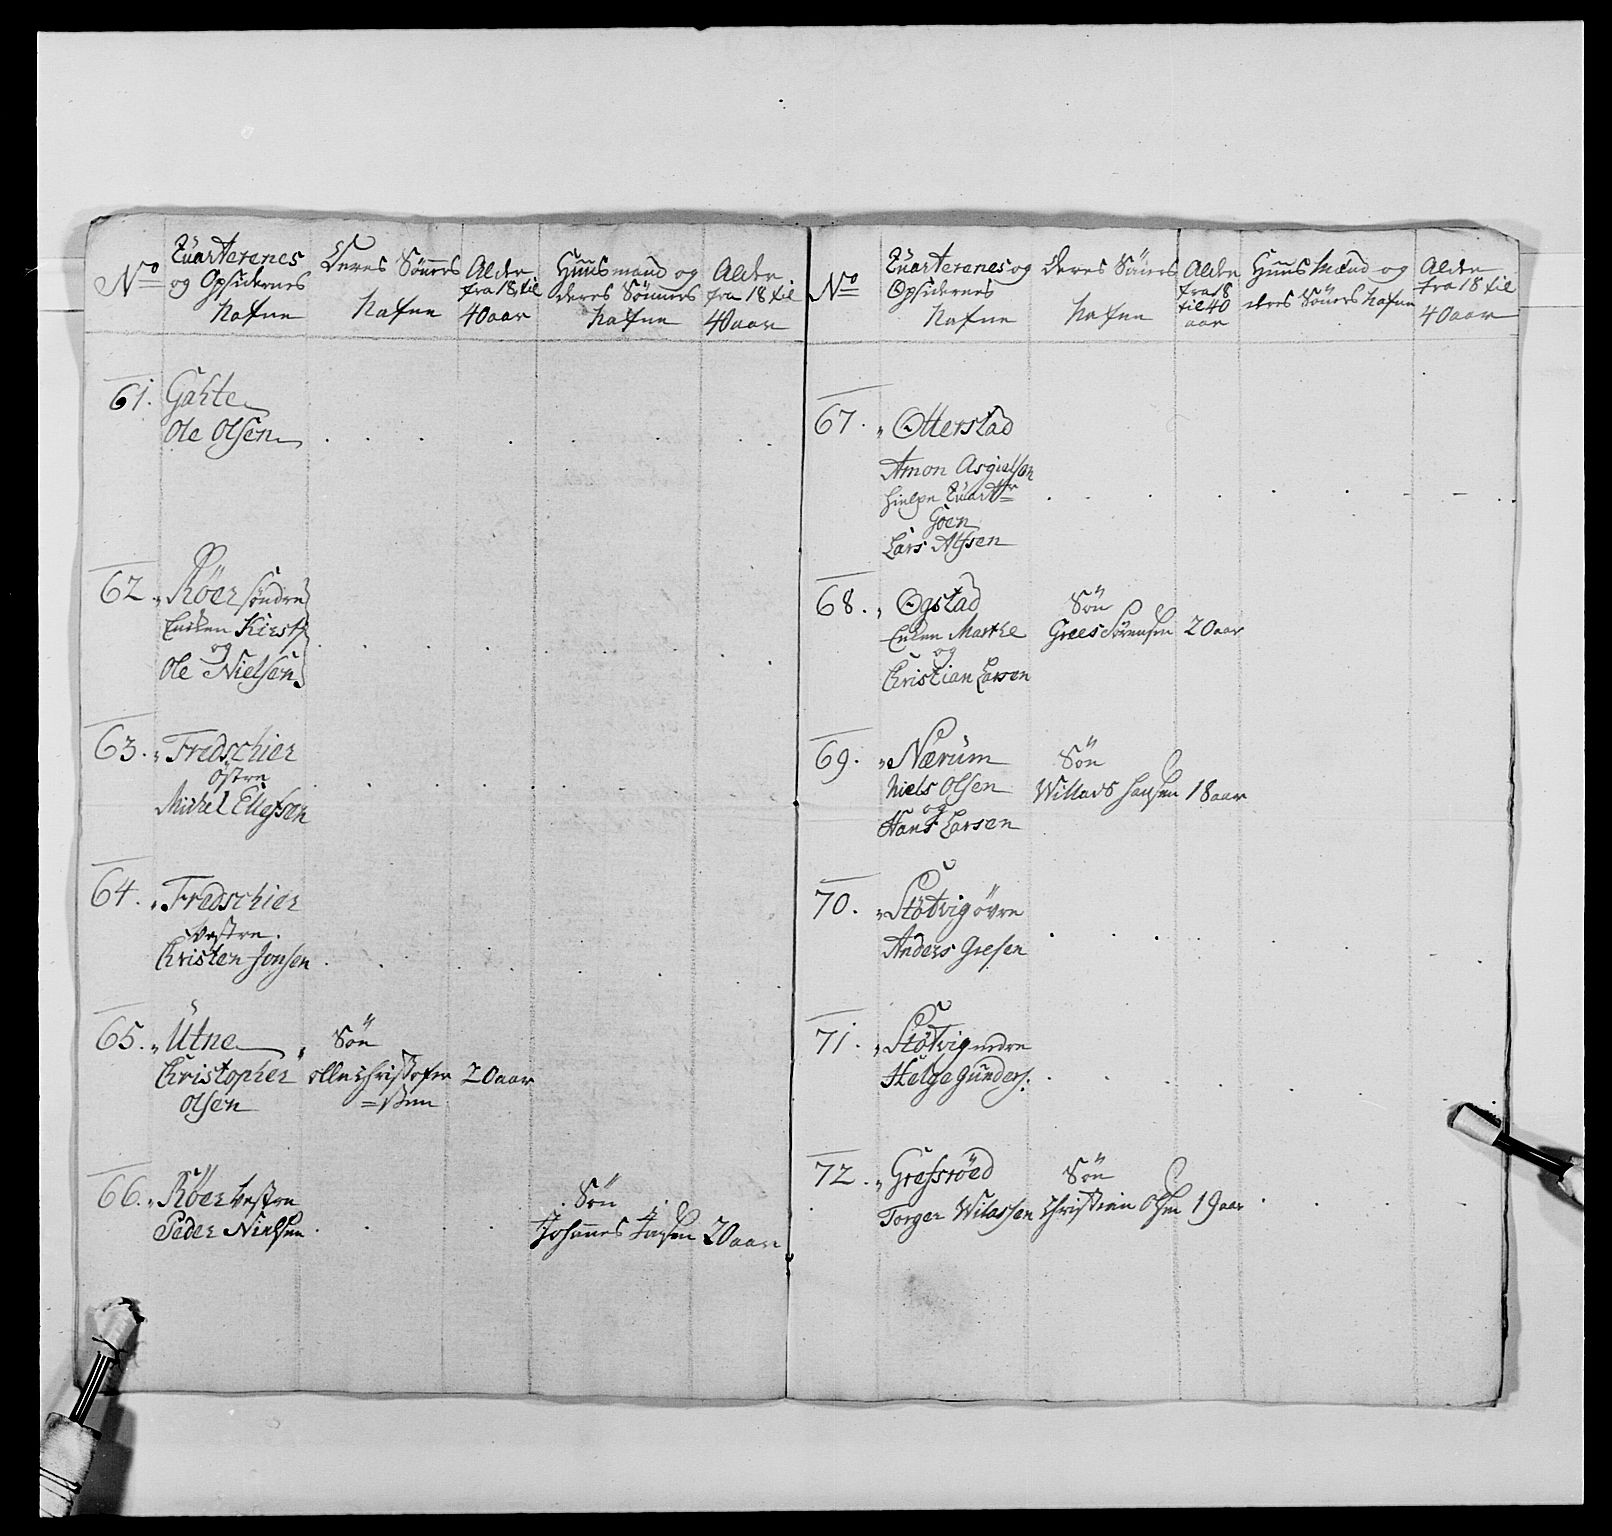 No
Quarterenes
og Opsidernes
Nafne
Deres Sønners
Nafne
Alder
fra 18 til
40 aar
Huusmænd og
deres Sønners
Nafne
Alder
fra 18 til
40 aar
61. Gahte
Ole Olsen
62. Røer søndre
Enken Kirst
og
Ole Nielsen
63. Fredschier
østre
Michel Ellefsøn
64. Fredschier
vestre.
Christen Jonsen
65. Utne
Christopher
Olsen
Søn
Olle Christofer
=ssen
20 aar
66. Røer vestre
Peder Nielsen
Søn
Johannes
20 aar
No
Quarterenes og
Opsidernes
Nafne
deres Søners
Nafne
Alder
fra 18
til 40
aar
Huusmænd og
deres Søners Nafne
Alder
fra 18 til
40 aar
67. Otterstad
Amon Asgielsøn
hielpe Quartr
Goen
Lars Alfsen
68. Øgstad
Enken Marthe
og
Christian Larsen
Søn
Grees Sørensen 20 aar
69. Nærum
Niels Olsen
og
Hans Larsen
Søn
Willads Hansen 18 aar
70. Støtvig øvre
Anders Gresen
71. Støtvig nedre
Helge Gunders:
72. Grefsrøed
Torger Wilassen
Søn
Christian Olsen 19 aar